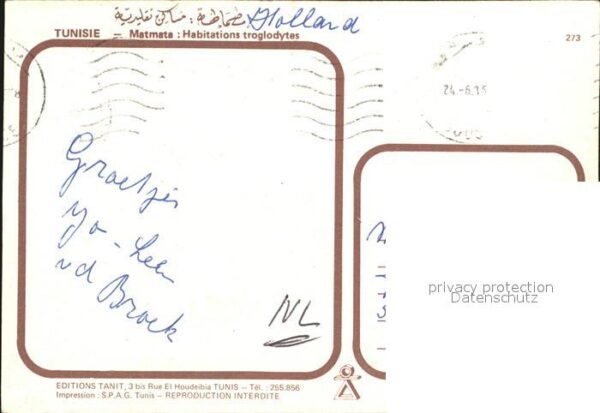 مطماطة : مساكن تقليدية Holland
TUNISIE — Matmata : Habitations troglodytes
273
24.-6.15
Groetjes
Yo-
vd Broek
NL
privacy protection
Datenschutz
EDITIONS TANIT, 3 bis Rue El Houdeibia TUNIS - Tél. : 255.856
Impression : S.P.A.G. Tunis - REPRODUCTION INTERDITE